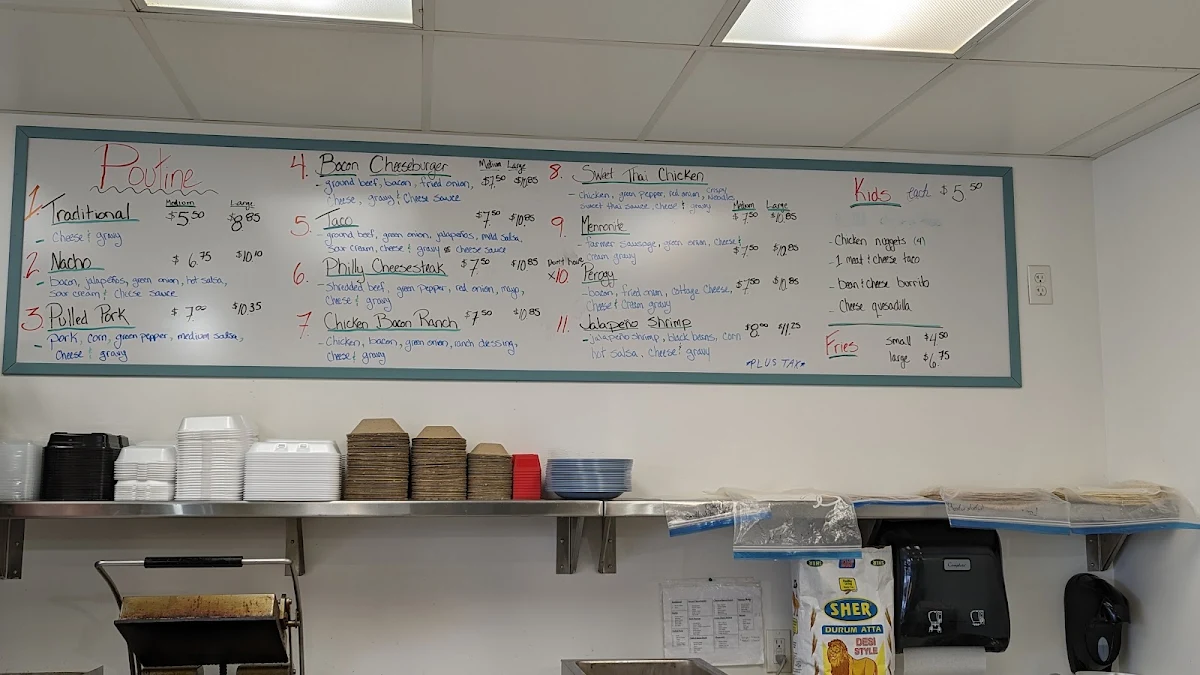 Poutine
1. Traditional Medium $5.50 Large $8.85
- Cheese & gravy
2. Nacho $6.75 $10.10
- bacon, jalapeños, green onion, hot salsa,
sour cream & cheese sauce
3. Pulled Pork $7.00 $10.35
- pork, corn, green pepper, medium salsa,
cheese & gravy
4. Bacon Cheeseburger Medium Large
- ground beef, bacon, fried onion, $7.50 $10.85
cheese, gravy & cheese sauce
5. Taco $7.50 $10.85
- ground beef, green onion, jalapeños, mild salsa,
sour cream, cheese & gravy & cheese sauce
6. Philly Cheesesteak $7.50 $10.85
- Shredded beef, green pepper, red onion, mayo,
Cheese & gravy
7. Chicken Bacon Ranch $7.50 $10.85
- Chicken, bacon, green onion, ranch dressing,
cheese & gravy
8. Sweet Thai Chicken
- Chicken, green pepper, red onion, crispy noodles,
sweet thai sauce, cheese & gravy
Medium Large
$7.50 $10.85
9. Mennonite
- farmer sausage, green onion, cheese &
cream gravy $7.50 $10.85
Don't have
x10. Perogy $7.50 $10.85
- bacon, fried onion, cottage cheese,
Cheese & cream gravy
11. Jalapeño Shrimp $8.00 $11.25
- jalapeño shrimp, black beans, corn
hot salsa, cheese & gravy
*PLUS TAX*
Kids each $5.50
- Chicken nuggets (4)
- 1 meat & cheese taco
- bean & cheese burrito
- Cheese quesadilla
Fries small $4.50
large $6.75
SHER
DURUM ATTA
DESI
STYLE